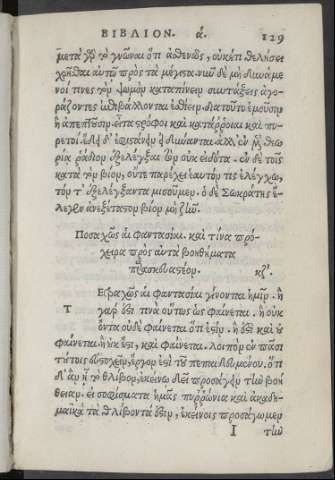 ΒΙΒΛΙΟΝ. ά. 129
μετὰ γὰρ τὸ γνῶναι ὅτι ἀσθενῶς, οὐκέτι θελήσει
χρῆσθαι αὐτῷ πρὸς τὰ μέγιστα. νῦν δὲ μὴ δυνάμε
νοί τινες τὸν ψωμὸν καταπίνειν συντάξεις ἀγο
ράζοντες ἐπιβάλλονται ἐσθίειν. διὰ τοῦτο ἐμοῦσιν
ἢ ἀπεπτοῦσιν. εἶτα στρόφοι καὶ κατάρροιαι καὶ πυ
ρετοί. ἔδει δ' ἐφιστάνειν εἰ δύνανται. ἀλλ' ἐν μὲν θεω
ρίᾳ ῥᾴδιον ἐξελέγξαι τὸν οὐκ εἰδότα. ἐν δὲ τοῖς
κατὰ τὸν βίον, οὔτε παρέχει ἑαυτόν τις ἐλέγχῳ,
τόν τ' ἐξελέγξαντα μισοῦμεν. ὁ δὲ Σωκράτης ἔ-
λεγεν ἀνεξέταστον βίον μὴ ζῆν.
Ποσαχῶς αἱ φαντασίαι. καὶ τίνα πρό-
χειρα πρὸς αὐτὰ βοηθήματα
παρασκευαστέον. κζ'.
Τ
Ετραχῶς αἱ φαντασίαι γίνονται ἡμῖν. ἢ
γὰρ ἔστι τινὰ οὕτως ὡς φαίνεται. ἢ οὐκ
ὄντα οὐδὲ φαίνεται ὅτι ἔστιν. ἢ ἔστι καὶ οὐ
φαίνεται. ἢ οὐκ ἔστι, καὶ φαίνεται. λοιπὸν ἐν πᾶσι
τούτοις εὐστοχεῖν, ἔργον ἐστὶ τοῦ πεπαιδευμένου. ὅ τι
δ' ἂν ᾖ τὸ θλίβον, ἐκείνῳ δεῖ προσάγειν τὴν βοή
θειαν. εἰ σοφίσματα ἡμᾶς πυῤῥώνια καὶ ἀκαδη-
μαϊκὰ τὰ θλίβοντά ἐστιν, ἐκείνοις προσάγωμεν
Ι τὴν